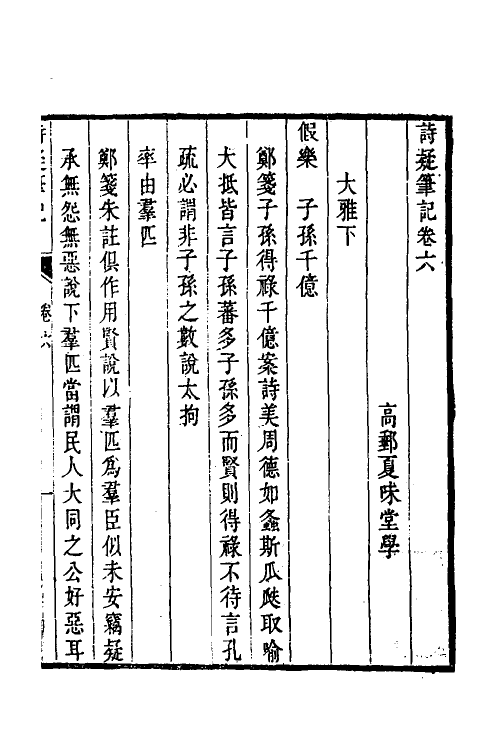 詩疑筆記卷六
高郵夏味堂學
大雅下
假樂　子孫千億
鄭箋子孫得祿千億案詩美周德如螽斯瓜瓞取喻
大抵皆言子孫蕃多子孫多而賢則得祿不待言孔
疏必謂非子孫之數說太拘
率由羣匹
鄭箋朱註俱作用賢說以羣匹爲羣臣似未安竊疑
承無怨無惡說下羣匹當謂民人大同之公好惡耳
詩疑筆記
卷六
一